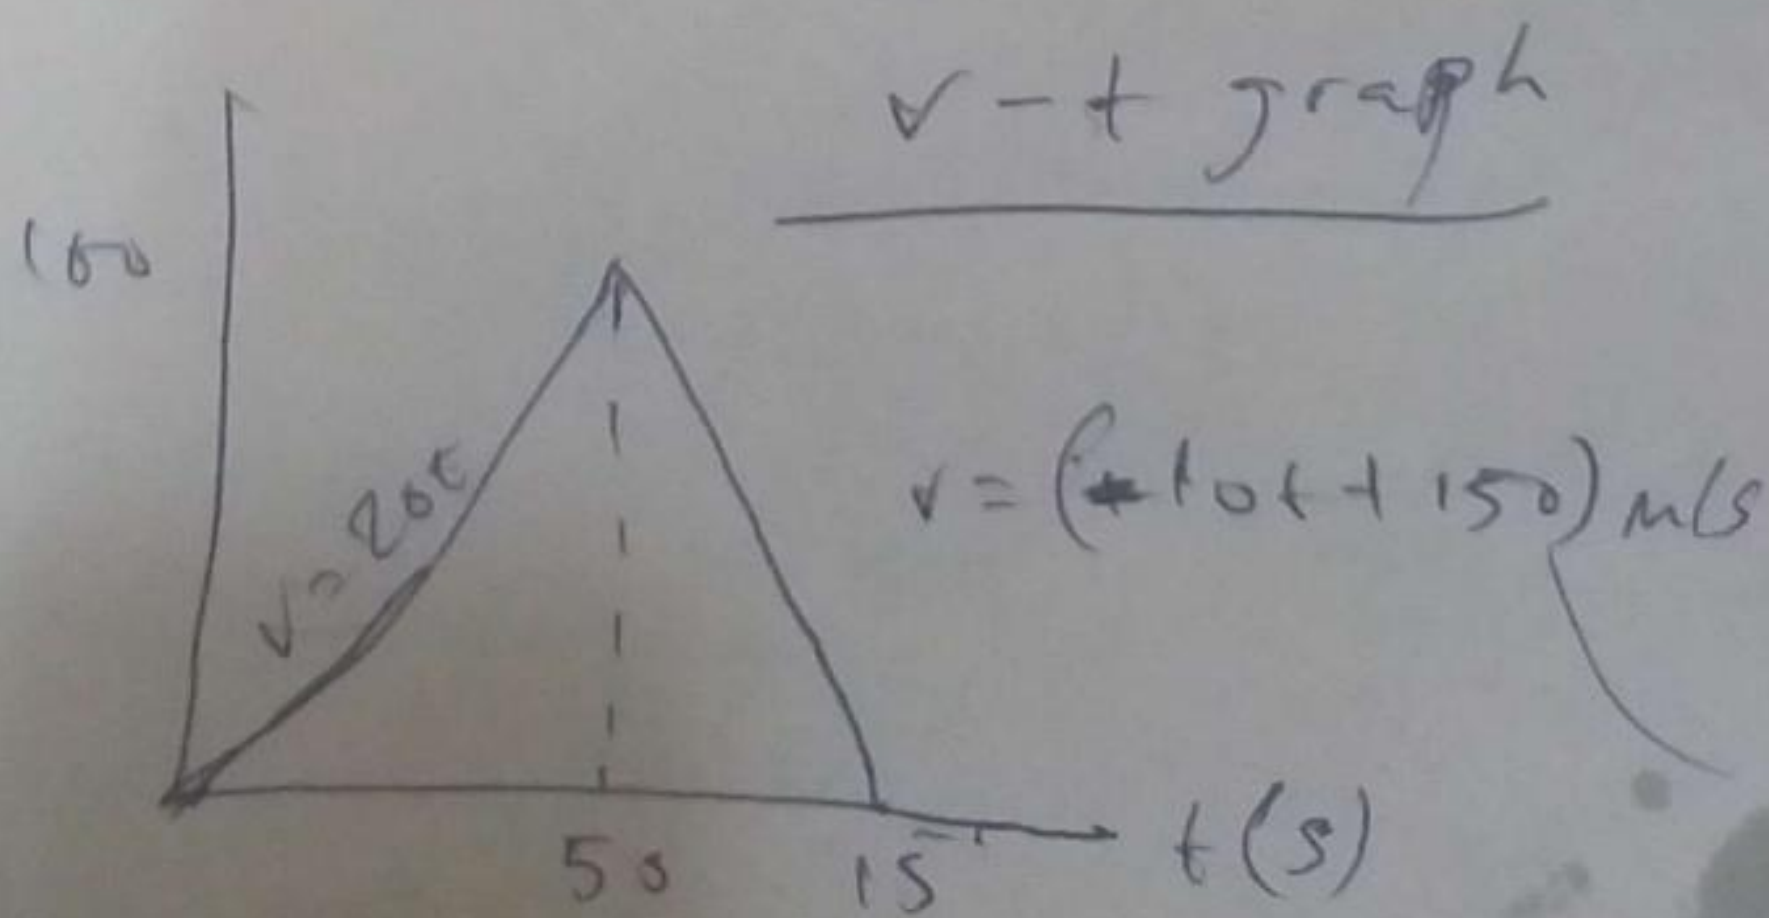 v-t graph
100
v=20t
v = (-10t + 150) m/s
50
15
t(s)